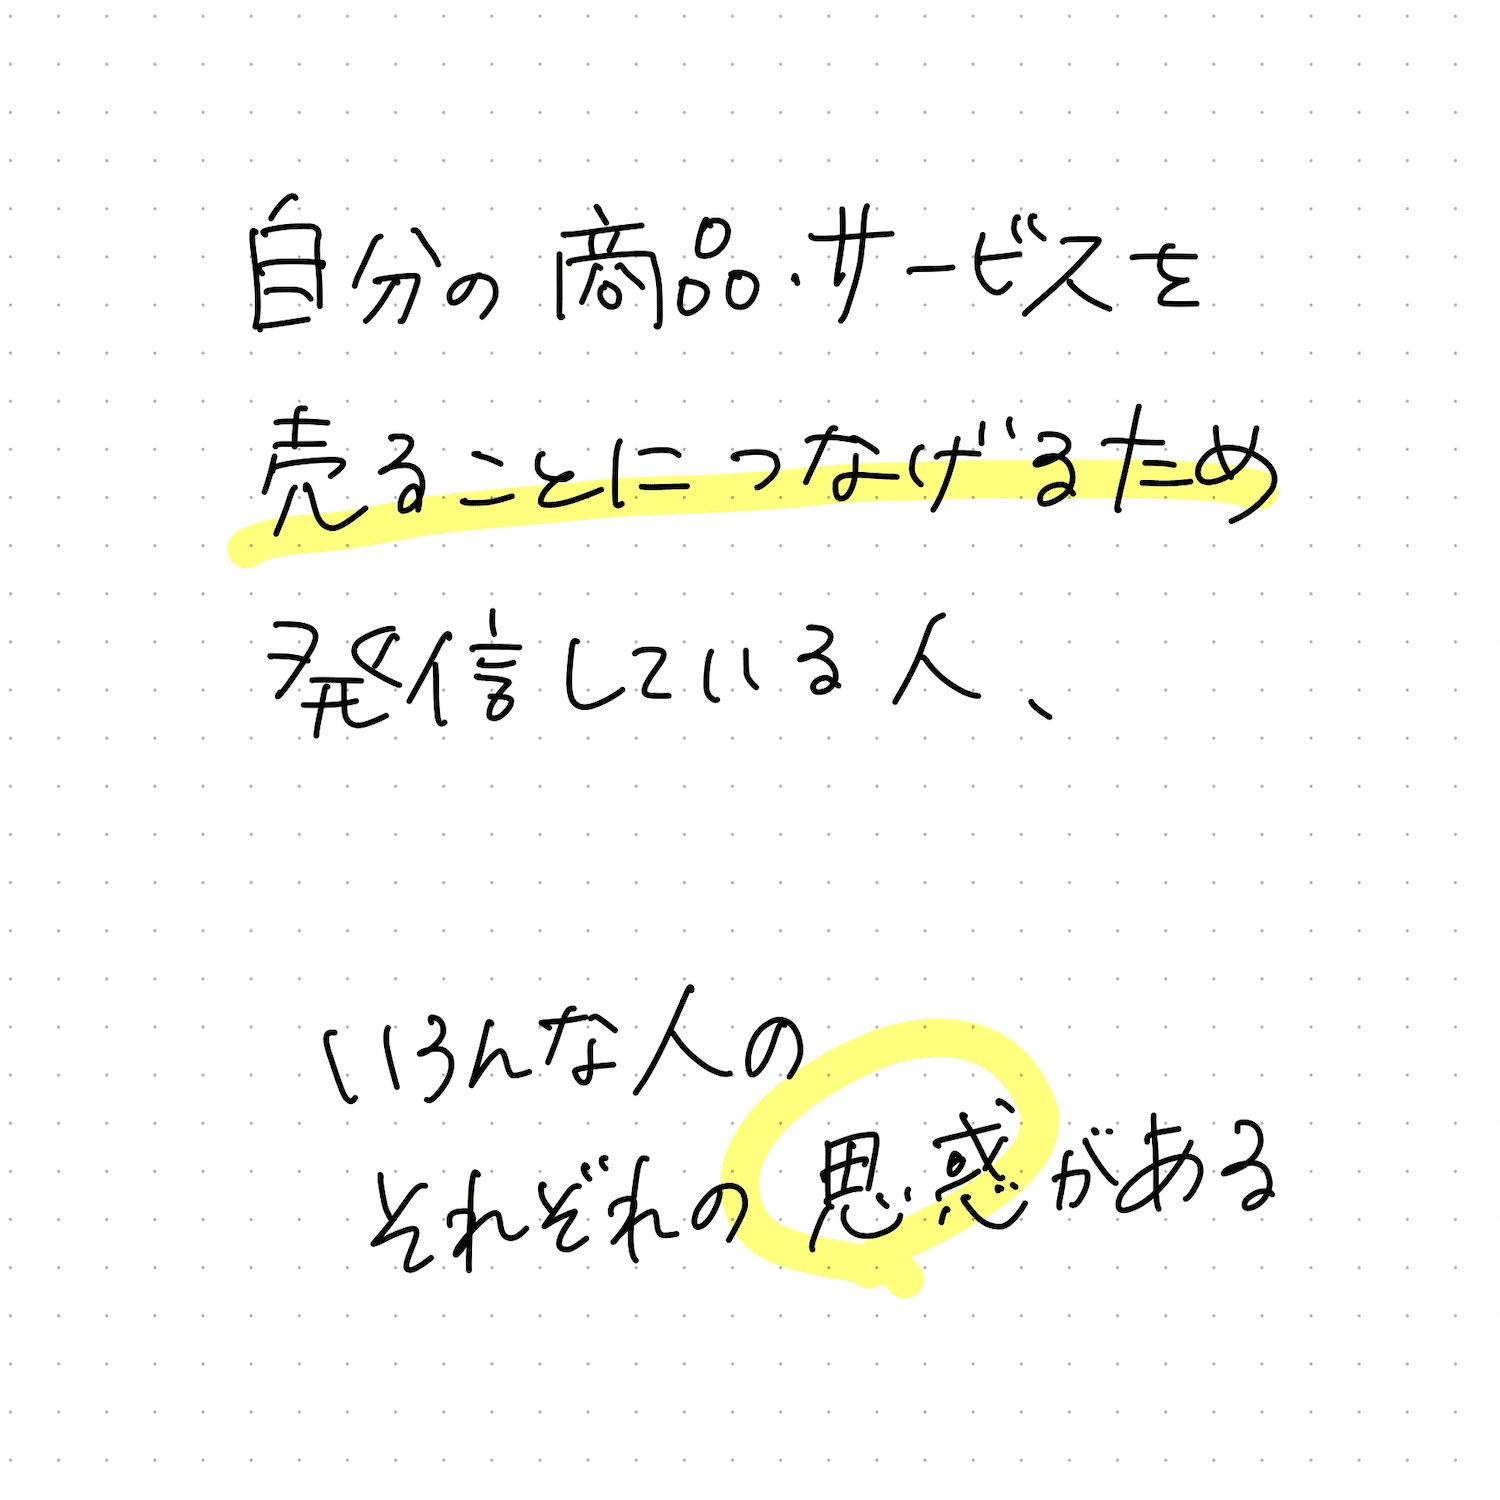 自分の商品・サービスを
売ることにつなげるため
発信している人、
いろんな人の
それぞれの思惑がある